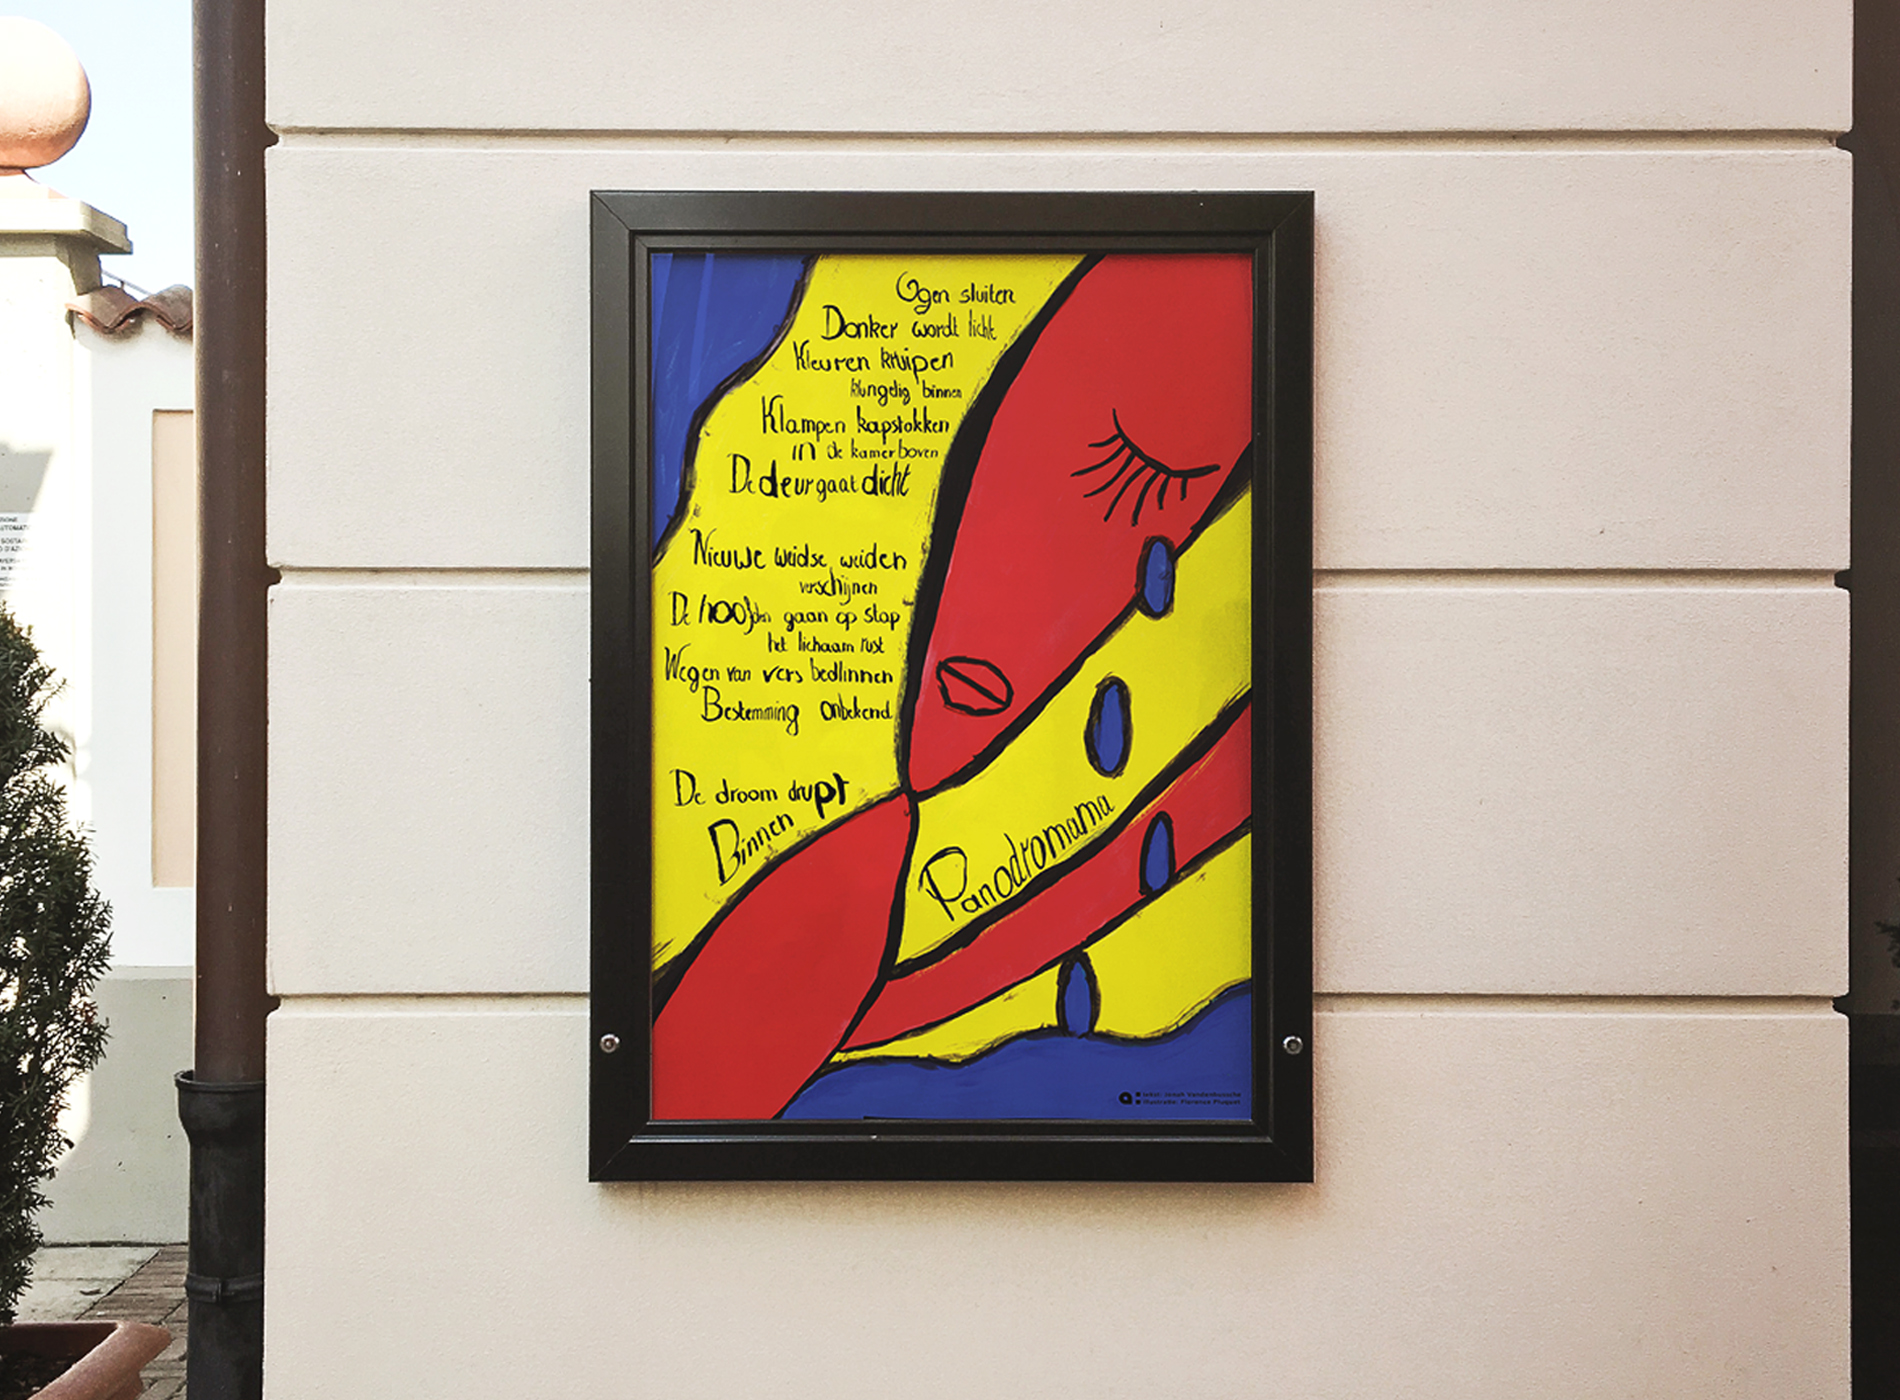 Ogen sluiten
Donker wordt licht
Kleuren kruipen
klungelig binnen
Klampen kapstokken
in de kamer boven
De deur gaat dicht
Nieuwe weidse weiden
verschijnen
De hoofden gaan op slop
het lichaam rust
Wegen van vers bedlinnen
Bestemming onbekend
De droom drupt
Binnen
Panodromama
a tekst: Jonah Vandenbussche
illustratie: Florence Pluquet